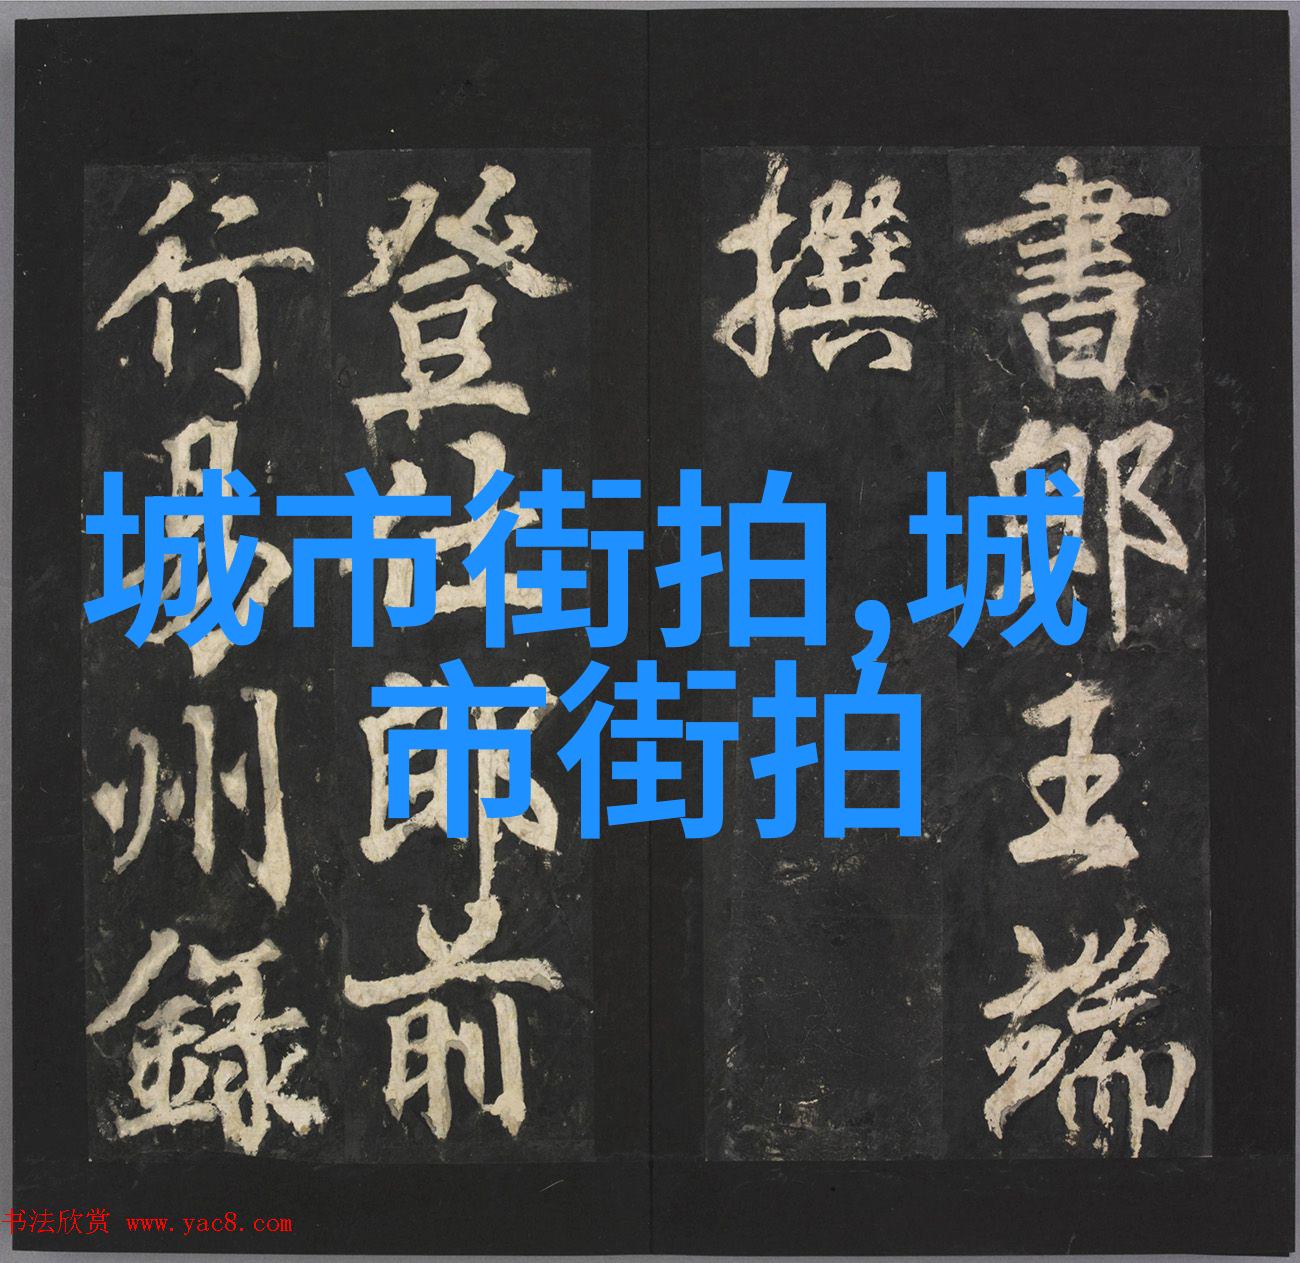 書郎王端
撰
登仕郎前
行易州録
城市街拍,城
市街拍
书法欣赏 www.yac8.com